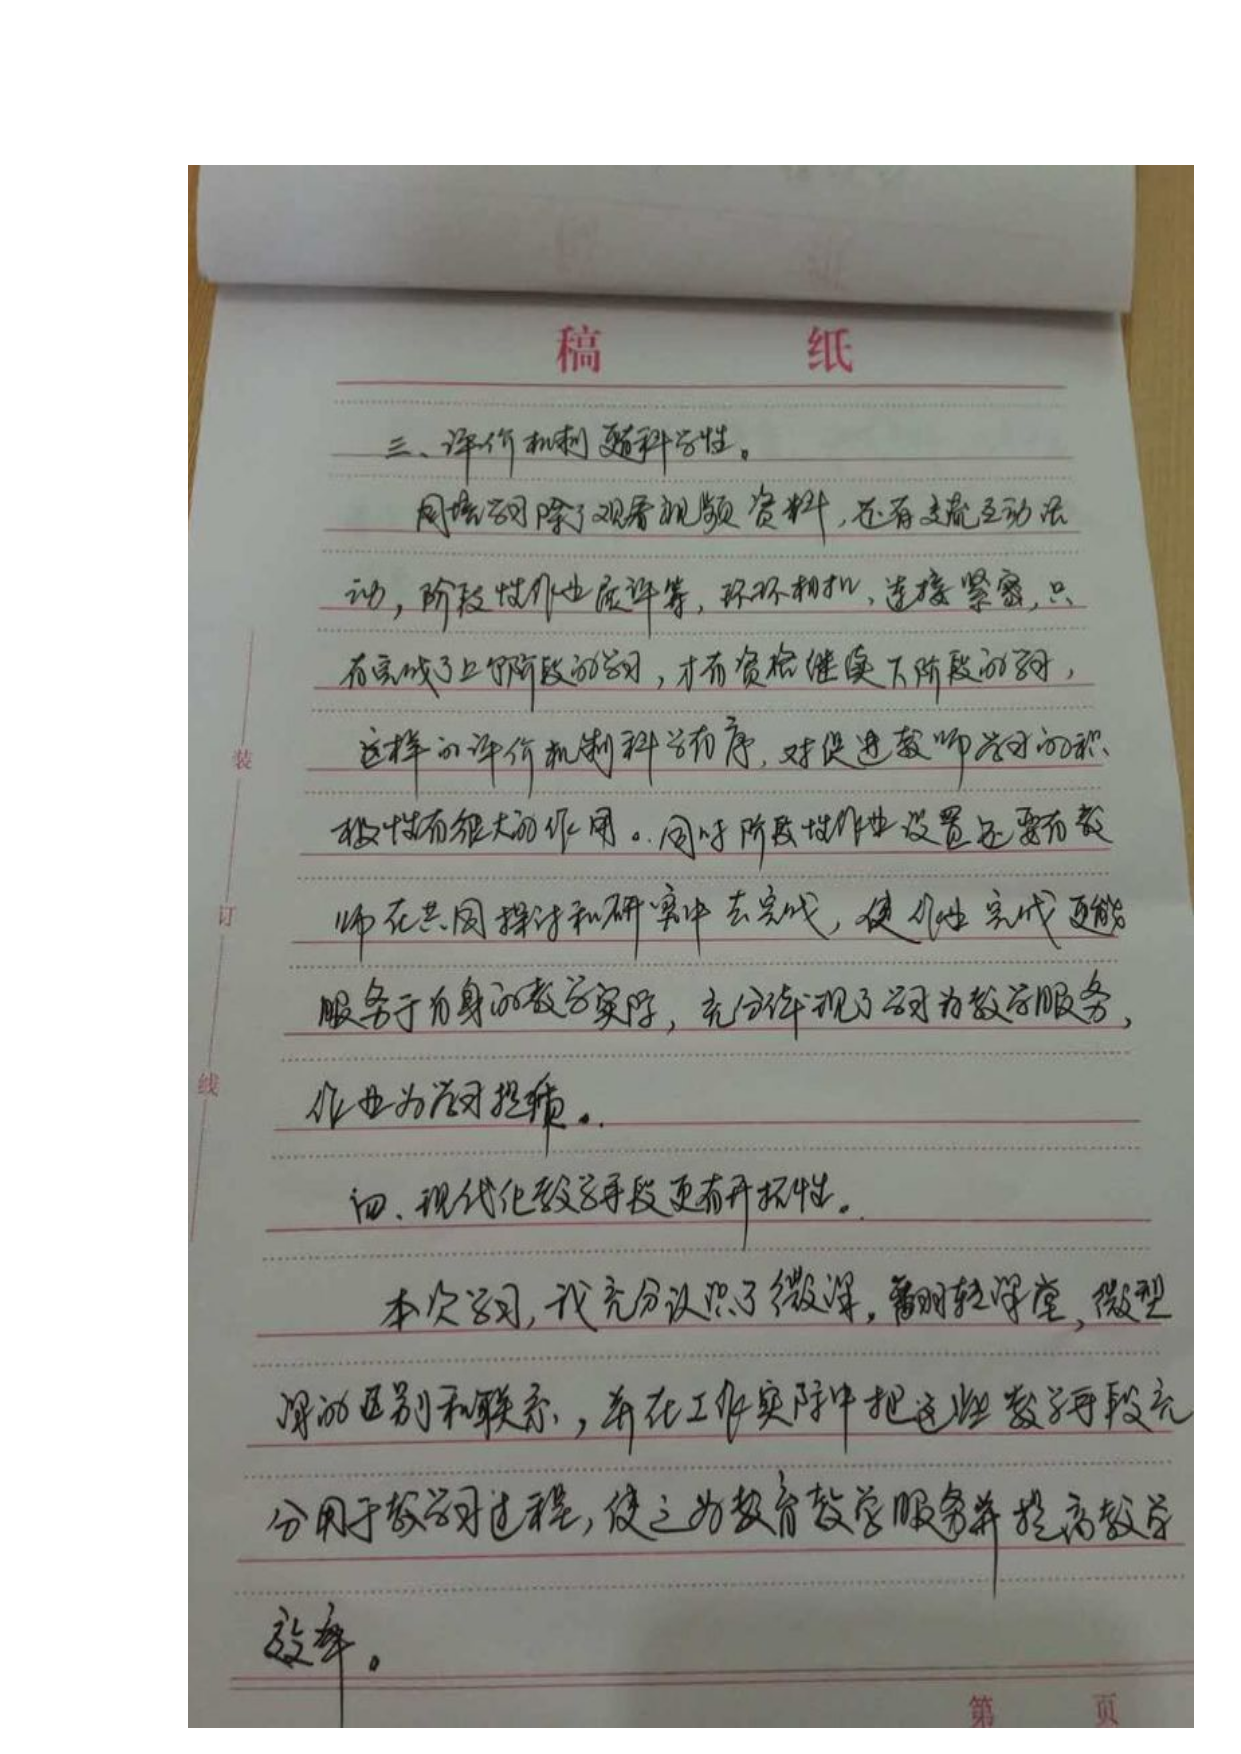 稿 纸
三、评价机制更有科学性。
网培学习除了观看视频资料,还有交流互动活
动,阶段性作业展评等,环环相扣、连接紧密,只
有完成了上个阶段的学习,才有资格继续下阶段的学习,
这样的评价机制科学有序,对促进教师学习的积
极性有很大的作用。同时阶段性作业设置还要有教
师在共同探讨和研究中去完成,使作业完成更能
服务于自身的教学实际,充分体现了学习为教学服务,
作业为学习提质。
四、现代化教学手段更有开拓性。
本次学习,我充分认识了微课,翻转课堂,微型
课的区别和联系,并在工作实际中把这些教学手段充
分用于教学习过程,使之为教育教学服务并提高教学
效率。
装
订
线
第 页